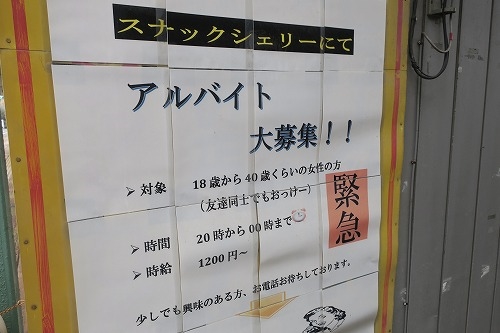 スナックシェリーにて
アルバイト
大募集！！
➢ 対象 18歳から40歳くらいの女性の方
（友達同士でもおっけー）
➢ 時間 20時から00時まで
➢ 時給 1200円～
緊急
少しでも興味のある方、お電話お待ちしております。